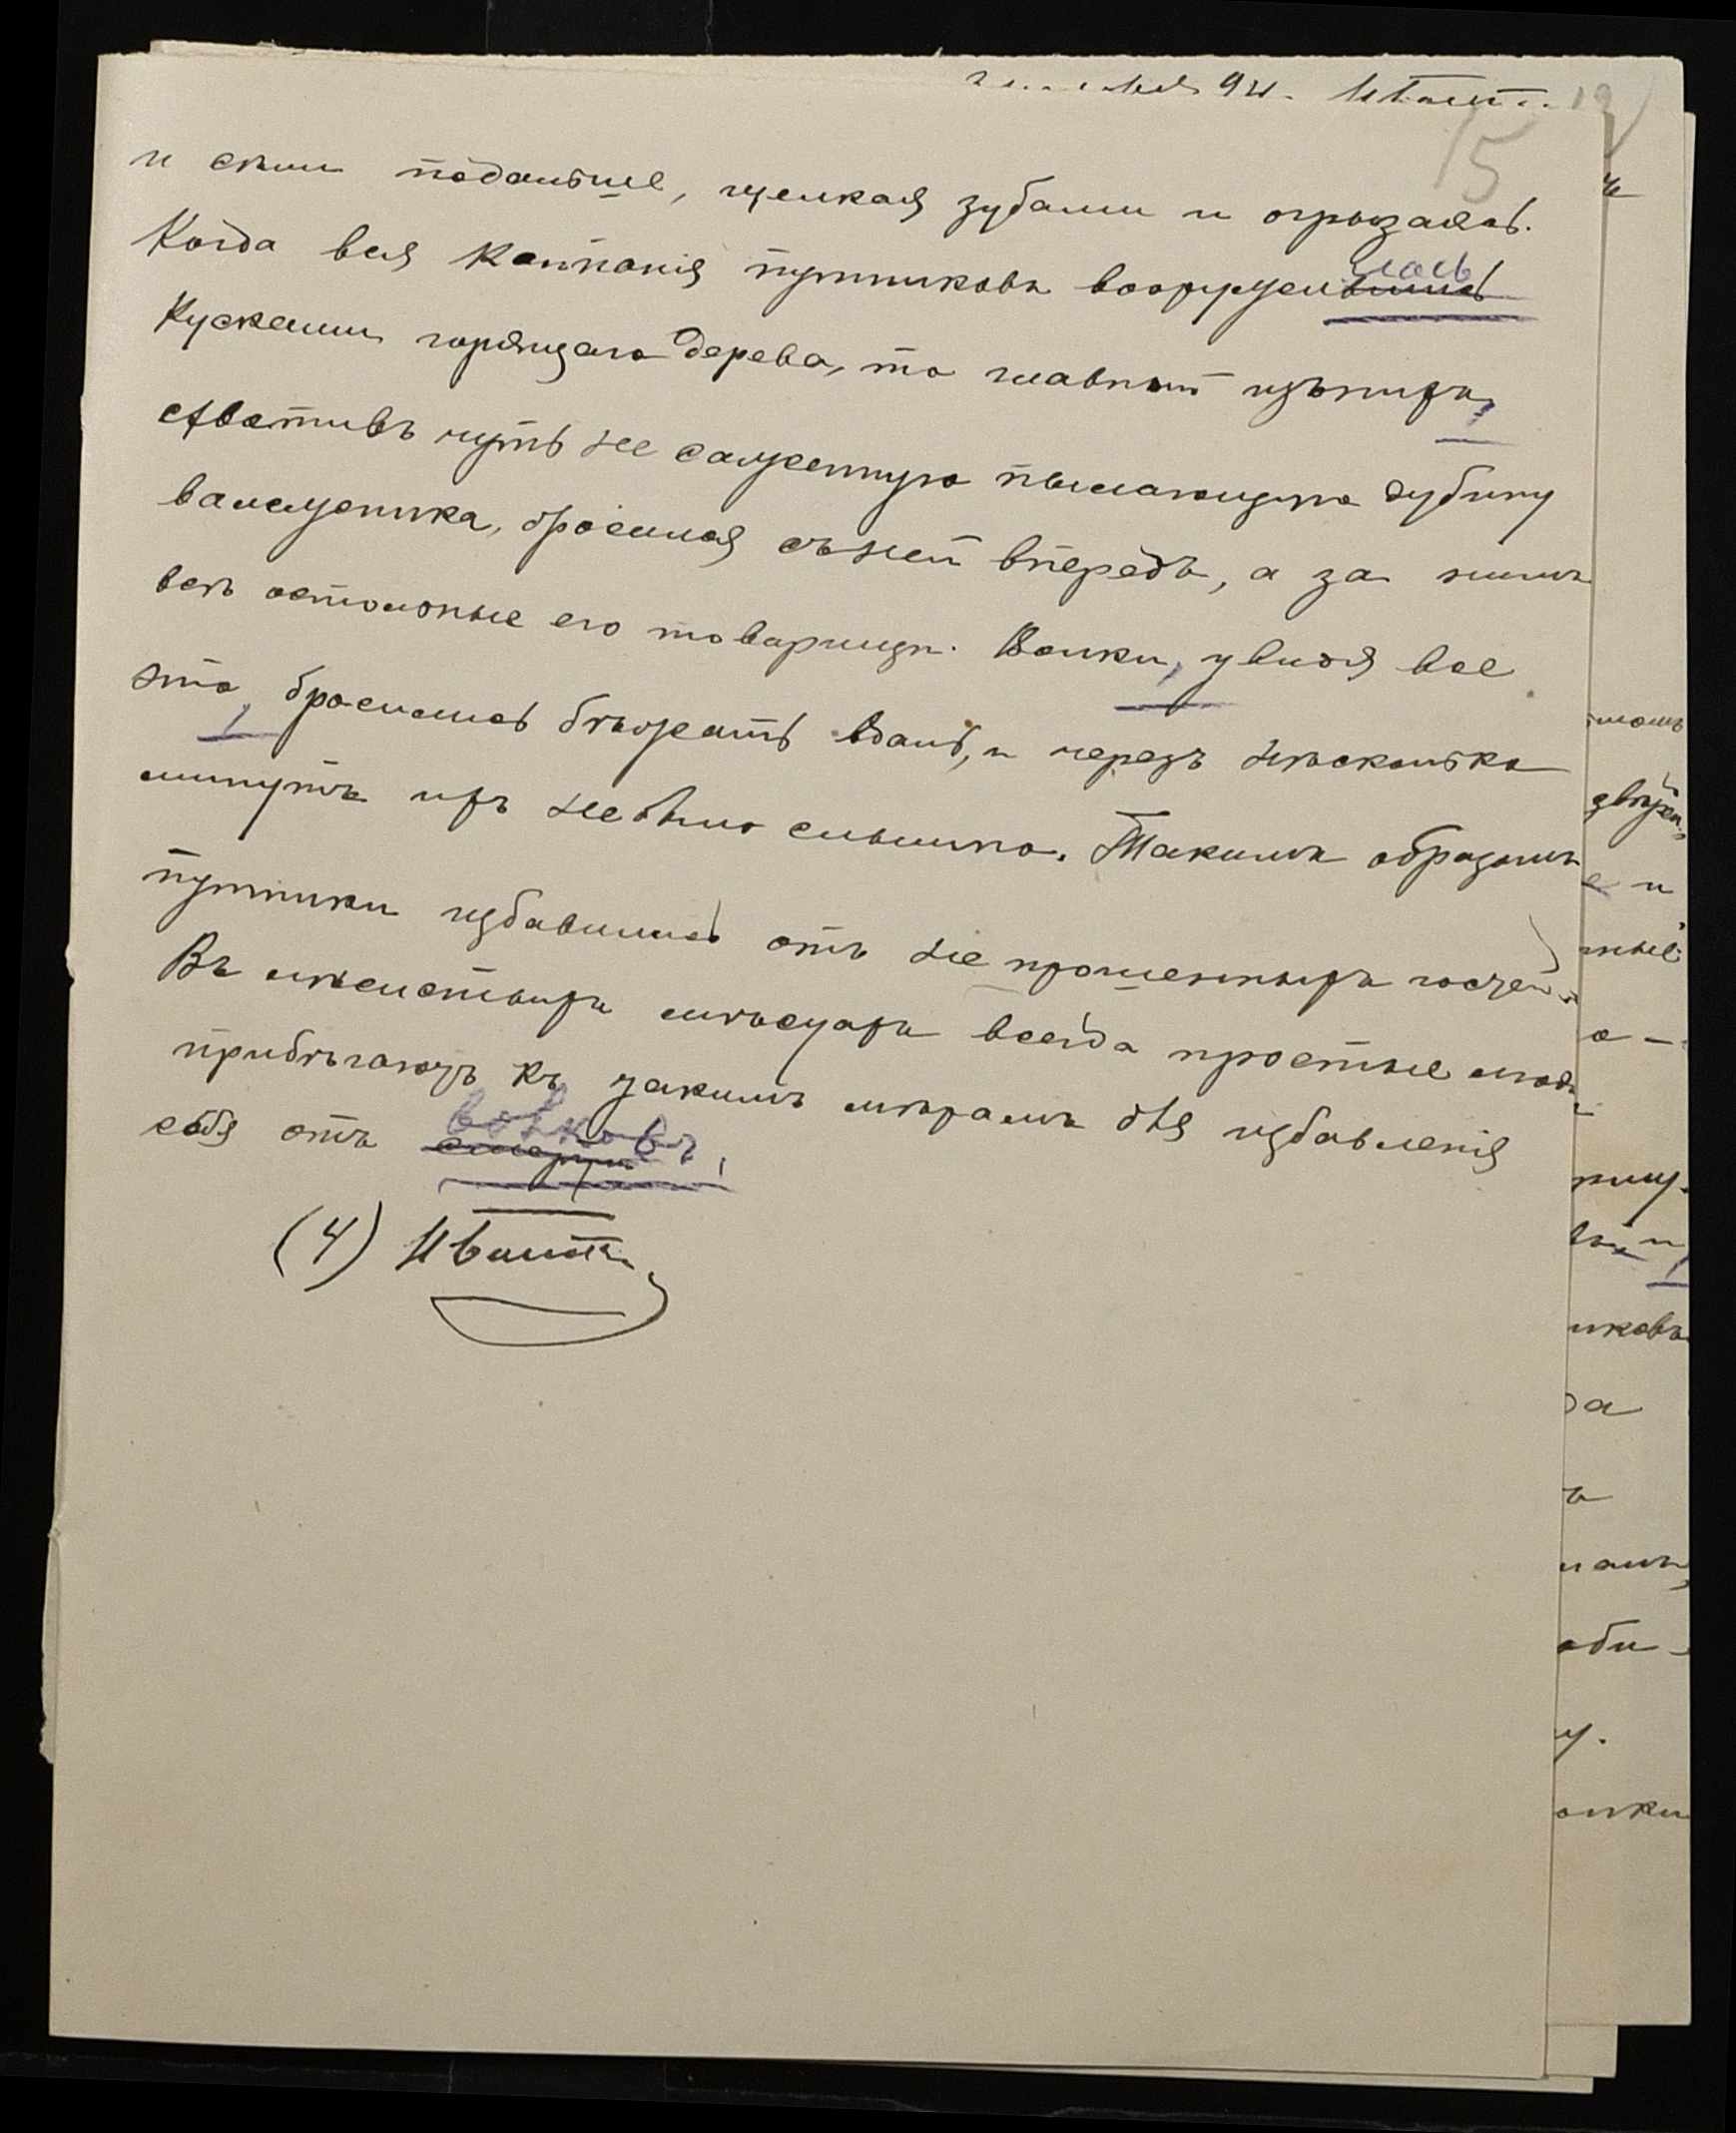 15
и сѣли подальше, щелкая зубами и огрызаясь.
Когда вся компанія путниковъ вооружилась
кусками горящаго дерева, то главный изъ нихъ,
схвативъ чуть не саженную пылающую дубину
валежника, бросился съ ней впередъ, а за нимъ
всѣ остальные его товарищи. Волки, увидя все
это, бросились бѣжать вдаль, и черезъ нѣсколько
минутъ ихъ не было слышно. Такимъ образомъ
путники избавились отъ не прошенныхъ гостей.
Въ лѣсистыхъ мѣстахъ всегда простые люди
прибѣгаютъ къ такимъ мѣрамъ для избавленія
себя отъ волковъ.
(4)